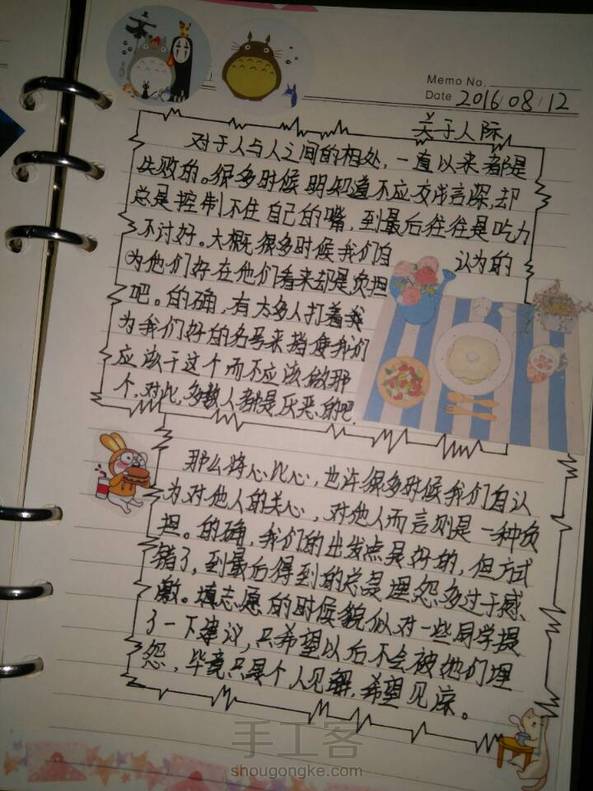 Memo No.
Date 2016 08 12
关于人际
对于人与人之间的相处，一直以来都是
失败的。很多时候明知道不应交浅言深，却
总是控制不住自己的嘴，到最后往往是吃力
不讨好。大概很多时候我们自认为的
为他们好在他们看来却是负担
吧。的确，有太多人打着我
为我们好的名号来指使我们
应该干这个而不应该做那
个，对此，多数人都是厌恶的吧。
那么将心比心，也许很多时候我们自认
为对他人的关心，对他人而言则是一种负
担。的确，我们的出发点是好的，但方式
错了，到最后得到的总是埋怨多过于感
激。填志愿的时候貌似对一些同学提
了一下建议，只希望以后不会被她们埋
怨，毕竟只是个人见解，希望见谅。
手工客
shougongke.com